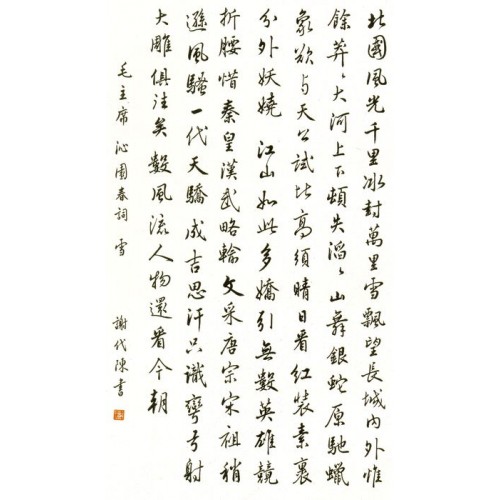 北國風光千里冰封萬里雪飄望長城內外惟
餘莽々大河上下頓失滔々山舞銀蛇原馳蠟
象欲与天公試比高須晴日看紅裝素裹
分外妖嬈 江山如此多嬌引無數英雄競
折腰惜秦皇漢武略輸文采唐宗宋祖稍
遜風騷一代天驕成吉思汗只識彎弓射
大雕俱往矣數風流人物還看今朝
毛主席 沁園春詞 雪 謝代陳書